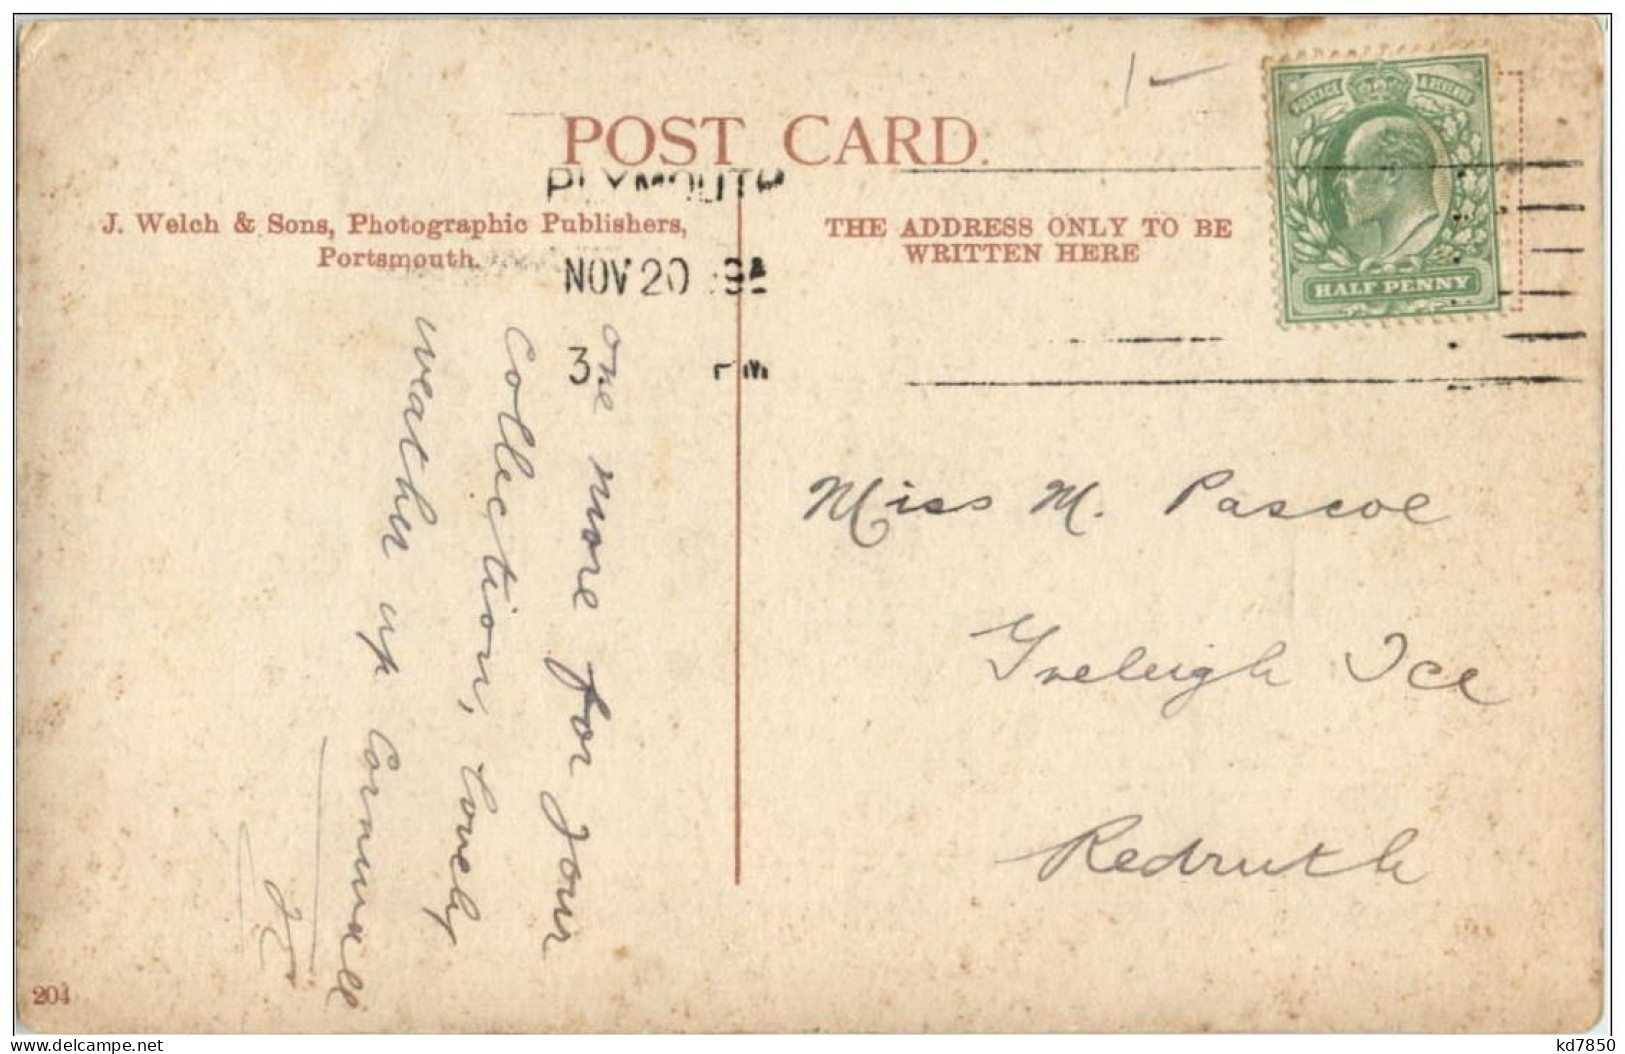 POST CARD
J. Welch & Sons, Photographic Publishers,
Portsmouth.
PLYMOUTH
NOV 20
3
PM
THE ADDRESS ONLY TO BE
WRITTEN HERE
POSTAGE & REVENUE
HALF PENNY
one more for your
Collection, lovely
weather up Cornwall
Miss M. Pascoe
Treleigh Ice
Redruth
204
www.delcampe.net
kd7850